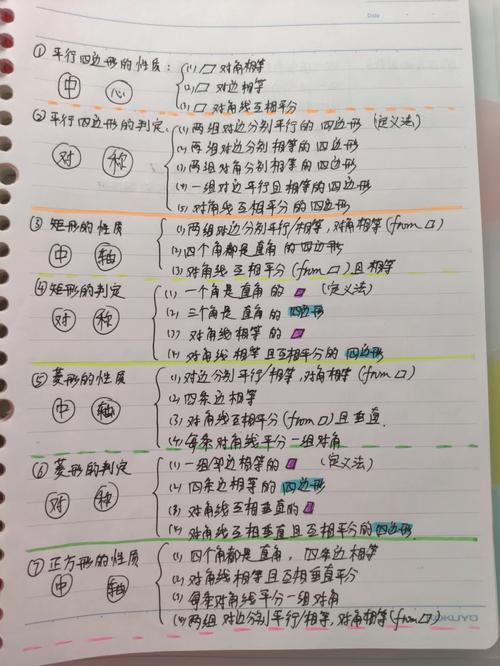 Date
① 平行四边形的性质：
(1) ▱ 对角相等
中 心
(2) ▱ 对边相等
(3) ▱ 对角线互相平分
② 平行四边形的判定.
(1) 两组对边分别平行的四边形 (定义法)
(2) 两组对边分别相等的四边形
对 称
(3) 两组对角分别相等的四边形
(4) 一组对边平行且相等的四边形
(5) 对角线互相平分的四边形
③ 矩形的性质
(1) 两组对边分别平行/相等，对角相等 (from ▱)
中 轴
(2) 四个角都是直角的四边形
(3) 对角线互相平分 (from ▱) 且相等
④ 矩形的判定
(1) 一个角是直角的 ▱ (定义法)
对 称
(2) 三个角是直角的 四边形
(3) 对角线相等的 ▱
(4) 对角线相等且互相平分的 四边形
⑤ 菱形的性质
(1) 对边分别平行/相等，对角相等 (from ▱)
中 轴
(2) 四条边相等
(3) 对角线互相平分 (from ▱) 且垂直.
(4) 每条对角线平分一组对角
⑥ 菱形的判定
(1) 一组邻边相等的 ▱ (定义法)
对 称
(2) 四条边相等的 四边形
(3) 对角线互相垂直的 ▱
(4) 对角线互相垂直且互相平分的 四边形.
⑦ 正方形的性质
(1) 四个角都是直角，四条边相等
中 轴
(2) 对角线相等且互相垂直平分
(3) 每条对角线平分一组对角
(4) 两组对边分别平行/相等，对角相等 (from ▱)
KOKUYO